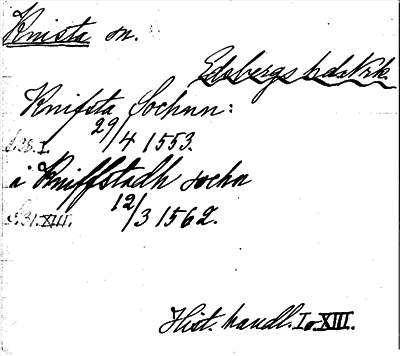 Knista sn.
Edsbergs hds Nrk.
Knifsta Sochnn:
S.38.I. 29/4 1553.
å Kniffstadh sochn
S.31.XIII. 12/3 1562.
Hist. handl. I o XIII.